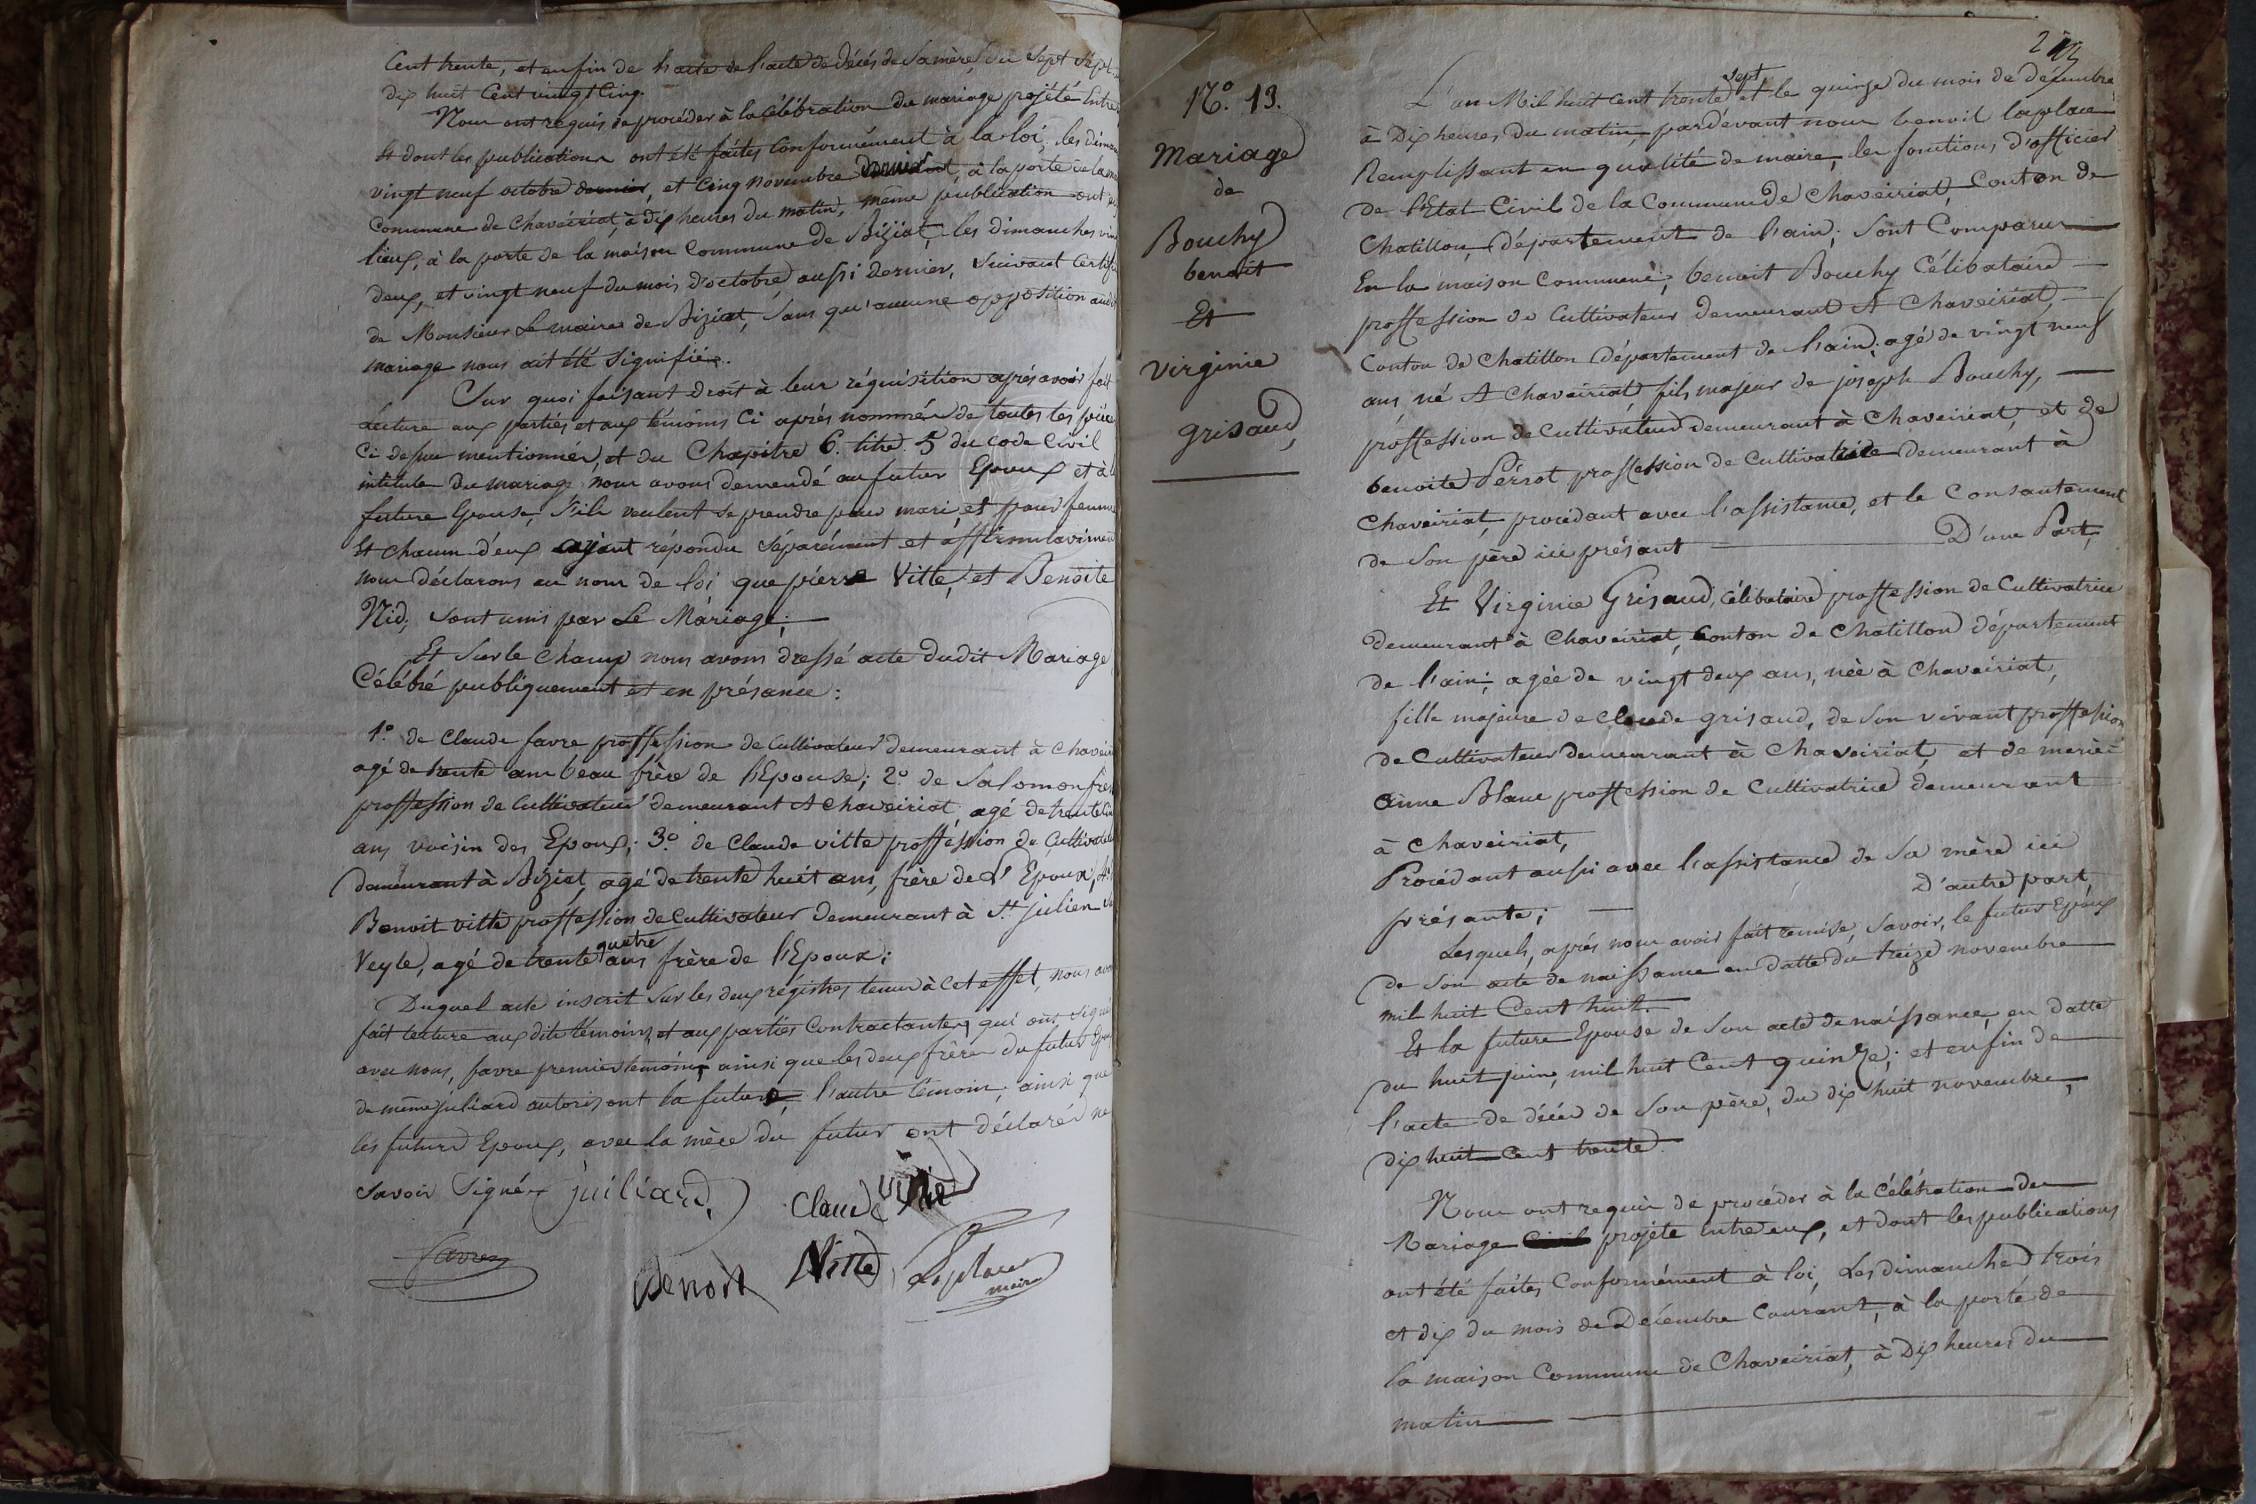 Cent trente, et enfin de l'acte de l'acte de décés de sa mère, du sept
dix huit Cent vingt Cinq.
Nous ont requis de procéder à la Célébration du mariage projété Entre
Et dont les publications ont été faites Conformément à la loi, les
vingt neuf octobre dernier, et Cinq novembre à la porte de la
Commune de Chaveiriat, à dix heures du matin, même publication ont
lieux, à la porte de la maison Commune de Biziat, les dimanches
deux, et vingt neuf du mois d'octobre aussi dernier, suivant
de Monsieur Le maire de Biziat, sans qu'aucune opposition
mariage nous ait été signifiée.
Sur quoi faisant Droit à leur réquisition après avoir fait
Lecture aux parties et aux témoins Ci après nommés de toutes les
Ci dessus mentionnées, et du Chapitre 6. titre 5 du Code Civil
intitulé Du mariage nous avons demendé au futur Epoux et à
future Epouse, s'ils veulent se prendre pour mari, et pour femme
Et chacun d'eux ayant répondu séparément et
nous déclarons au nom de loi que pierre Vitte, et Benoite
Nid, sont unis par Le Mariage;
Et sur le champ nous avons dressé acte dudit Mariage
Célébré publiquement et en présance:
1.° de Claude favre proffession de Cultivateur demeurant à
agé de trente ans beau frère de l'Epouse; 2° de Salomon
proffession de Cultivateur demeurant A Chaveiriat, agé de
ans voisin des Epoux; 3.° de Claude vitte proffession de
demeurant à Biziat, agé de trente huit ans, frère de L'Epoux,
Benoit vitte proffession de Cultivateur Demeurant à St. julien
Veyle, agé de trente quatre ans frère de l'Epoux;
Duquel acte inscrit sur les deux régistres tenus à Cet effet, nous
fait lecture aux dits témoins, et aux parties Contractantes, qui ont signé
avec nous, favre premier temoin, ainsi que les deux frères du futur
de même juliard autorisant la future, l'autre témoin, ainsi que
les futurs Epoux, avec la mère du futur ont déclarés ne
savoir signér juiliard,
Claude Vitte
favre
Benoit Vitte
Laplace
maire
N.° 13.
Mariage
de
Bouchy
benoit
Et
virginie
grisaud,
L'an Mil huit Cent trente sept et le quinze du mois de décembre
à Dix heures du matin, pardevant nous benoit laplace
Remplissant en qualité de maire, les fonctions d'officier
de l'Etat Civil de la Commune de Chaveiriat, Conton de
Chatillon, département de l'ain; sont Comparus
En la maison Commune; benoit Bouchy Célibataire
proffession de Cultivateur Demeurant A Chaveiriat,
Conton de Chatillon Département de l'ain; agé de vingt neuf
ans, né A Chaveiriat fils majeur de joseph Bouchy,
proffession de Cultivateur demeurant à Chaveiriat, et de
benoite Pérrot proffession de Cultivatrice demeurant à
Chaveiriat, procédant avec l'assistance, et le Consantement
de son père ici présant D'une Part,
Et Virginie Grisaud, célibataire proffession de Cultivatrice
demeurant à Chaveiriat, Conton de Chatillon département
de l'ain; agée de vingt deux ans, née à Chaveiriat,
fille majeure de Claude grisaud, de son vivant proffession
de Cultivateur demeurant à Chaveiriat, et de marie
anne Blanc proffession de Cultivatrice demeurant
à Chaveiriat,
Procédant aussi avec l'assistance de sa mère ici
présante; D'autre part,
Lesquels, après nous avoir fait remise, savoir, le futur Epoux
de son acte de naissance en datte du treize novembre
mil huit Cent huit.
Et la future Epouse de son acte de naissance, en datte
du huit juin, mil huit Cent quinze; et enfin de
l'acte de décés de son père, du dix huit novembre,
dix huit Cent trente.
Nous ont requis de procéder à la Célébration du
Mariage projété Entre eux, et dont les publications
ont été faites Conformément à loi, Les dimanches trois
et dix du mois de Décembre Courant, à la porte de
la maison Commune de Chaveiriat, à Dix heures du
matin